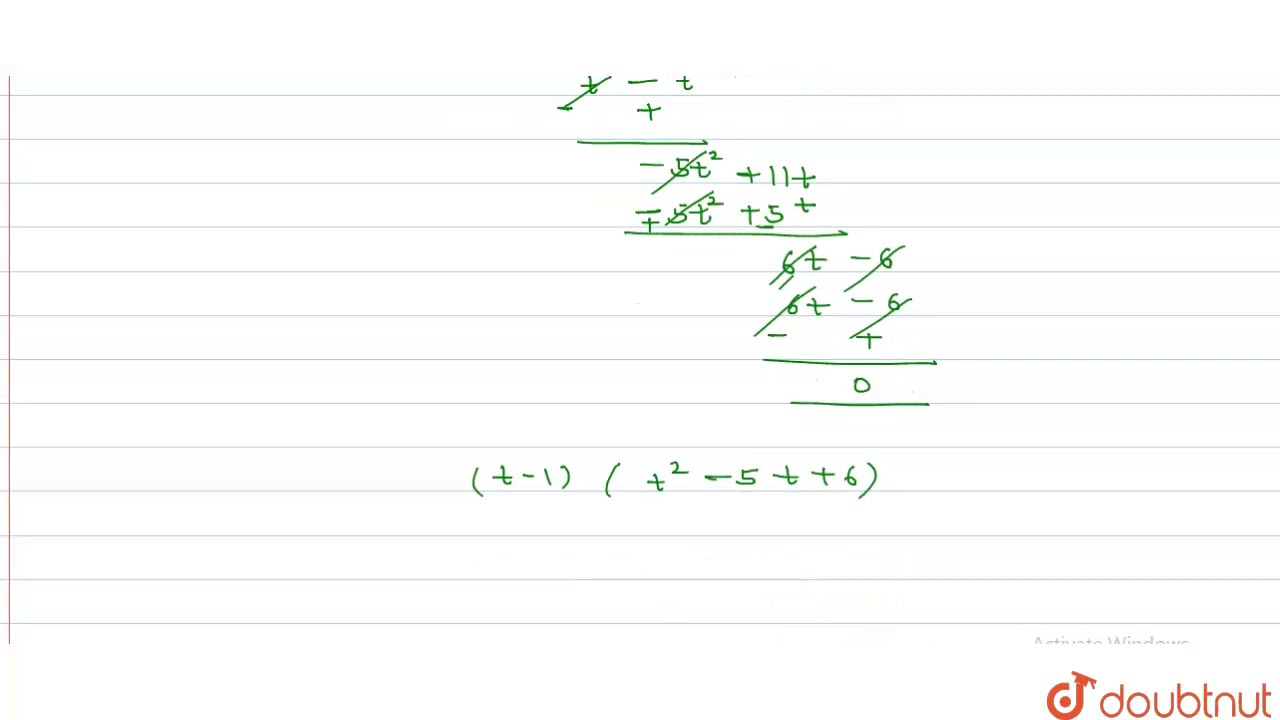 t - t
- +
- 5t² + 11t
- 5t² + 5t
+ -
6t - 6
6t - 6
- +
0
(t-1) (t² - 5t + 6)
Activate Windows
doubtnut